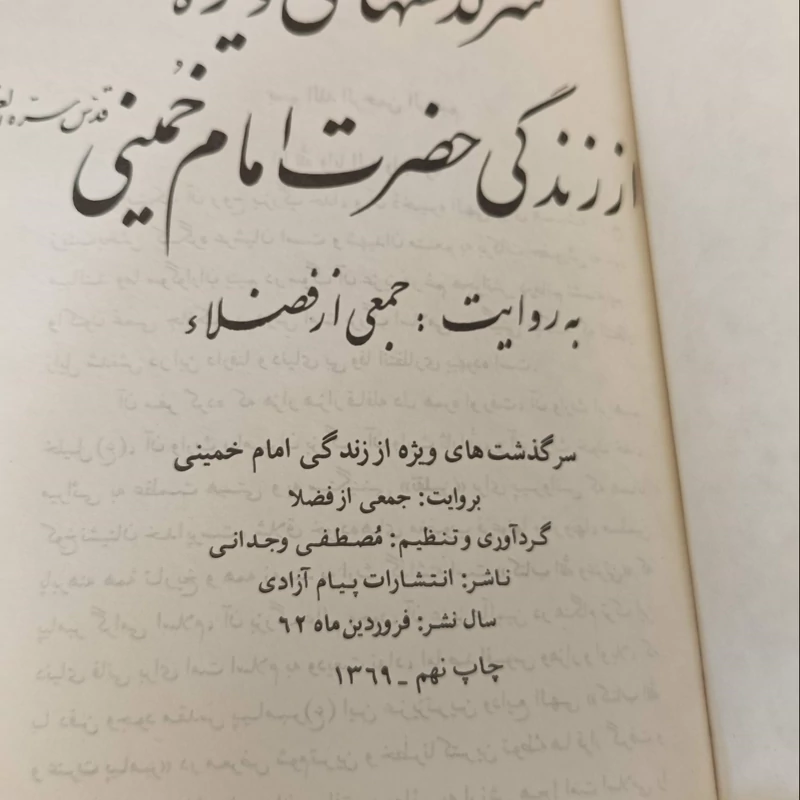 سرگذشتهای ویژه
از زندگی حضرت امام خمینی قدس سره
به روایت : جمعی از فضلاء
سرگذشت های ویژه از زندگی امام خمینی
بروایت: جمعی از فضلا
گردآوری و تنظیم: مُصطفی وجدانی
ناشر: انتشارات پیام آزادی
سال نشر: فروردین ماه ۶۲
چاپ نهم ـ ۱۳۶۹